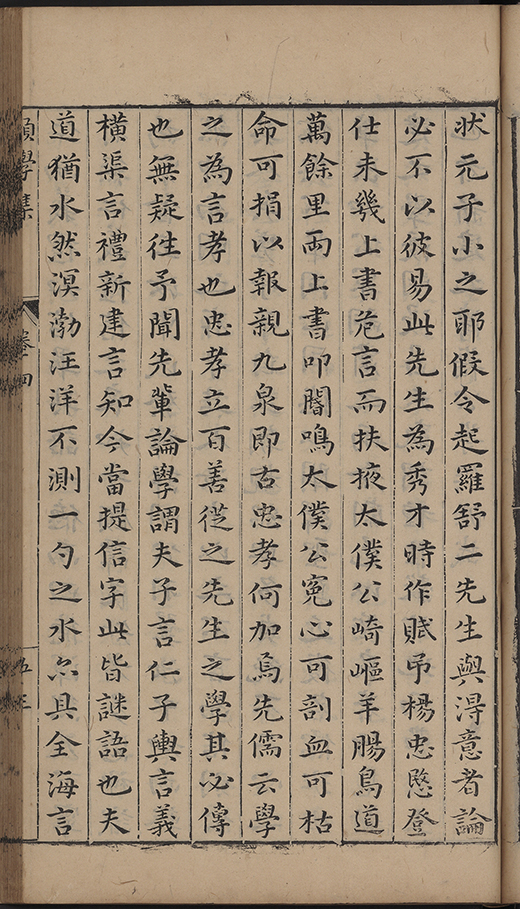 狀元子小之耶假令起羅舒二先生與淂意者論
必不以彼易此先生為秀才時作賦吊楊忠愍登
仕未幾上書危言而扶掖太僕公崎嶇羊腸鳥道
萬餘里兩上書叩閽鳴太僕公寃心可剖血可枯
命可捐以報親九泉即古忠孝何加焉先儒云學
之為言孝也忠孝立百善從之先生之學其必傳
也無疑徃予聞先輩論學謂夫子言仁子輿言義
橫渠言禮新建言知今當提信字此皆謎語也夫
道猶水然溟渤汪洋不測一勺之水亦具全海言
學集
卷四
五三